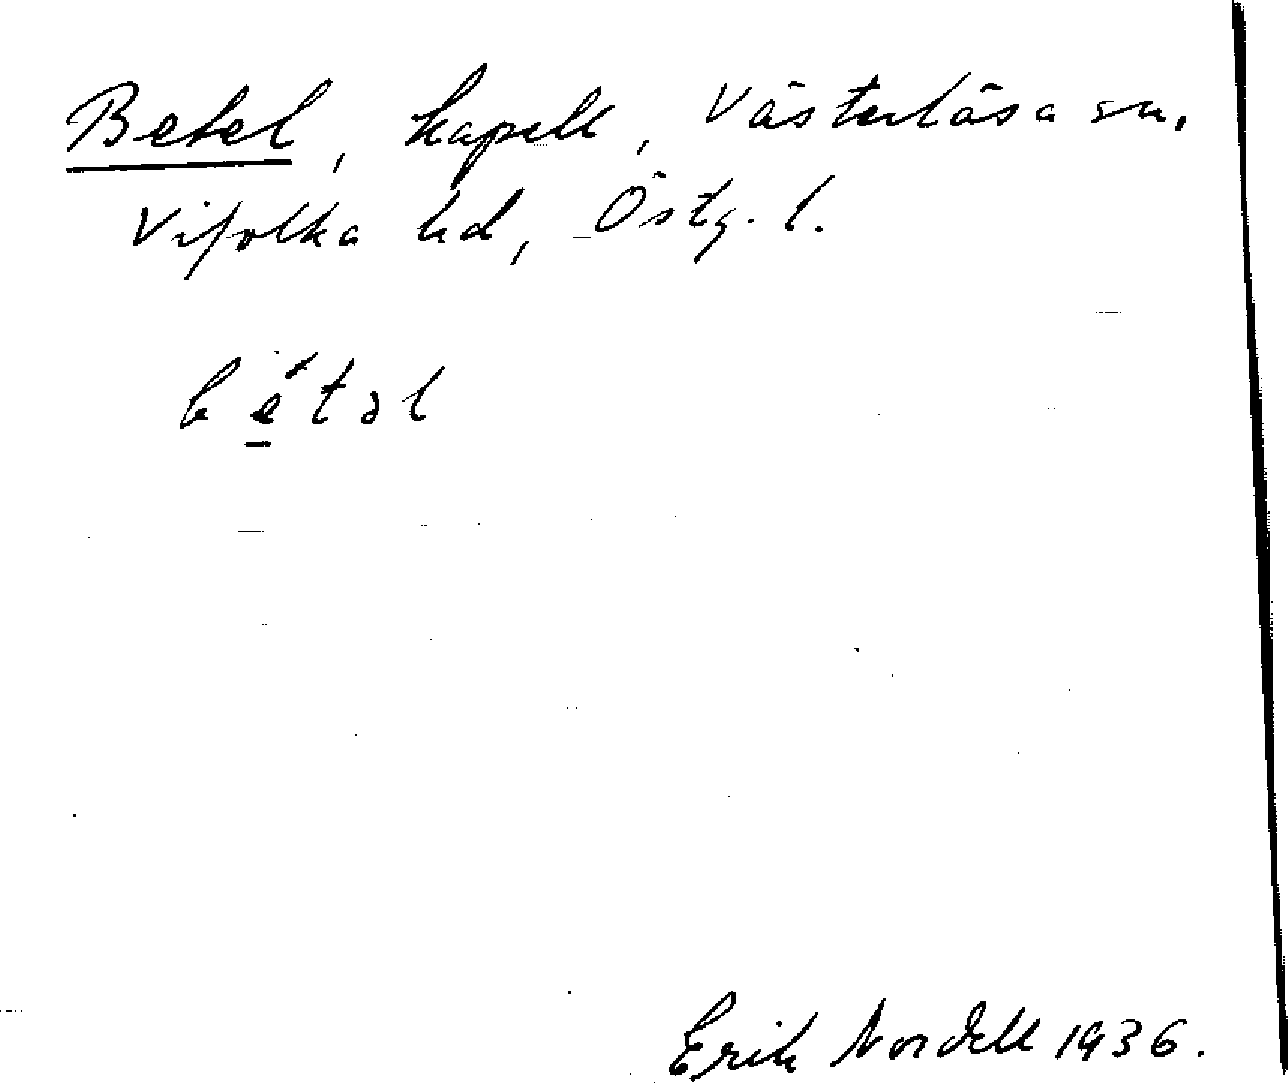 Betel, kapell, Västerlösa sn,
Vifolka hd, Östg. l.
bét̲əl
Erik Nordell 1936.